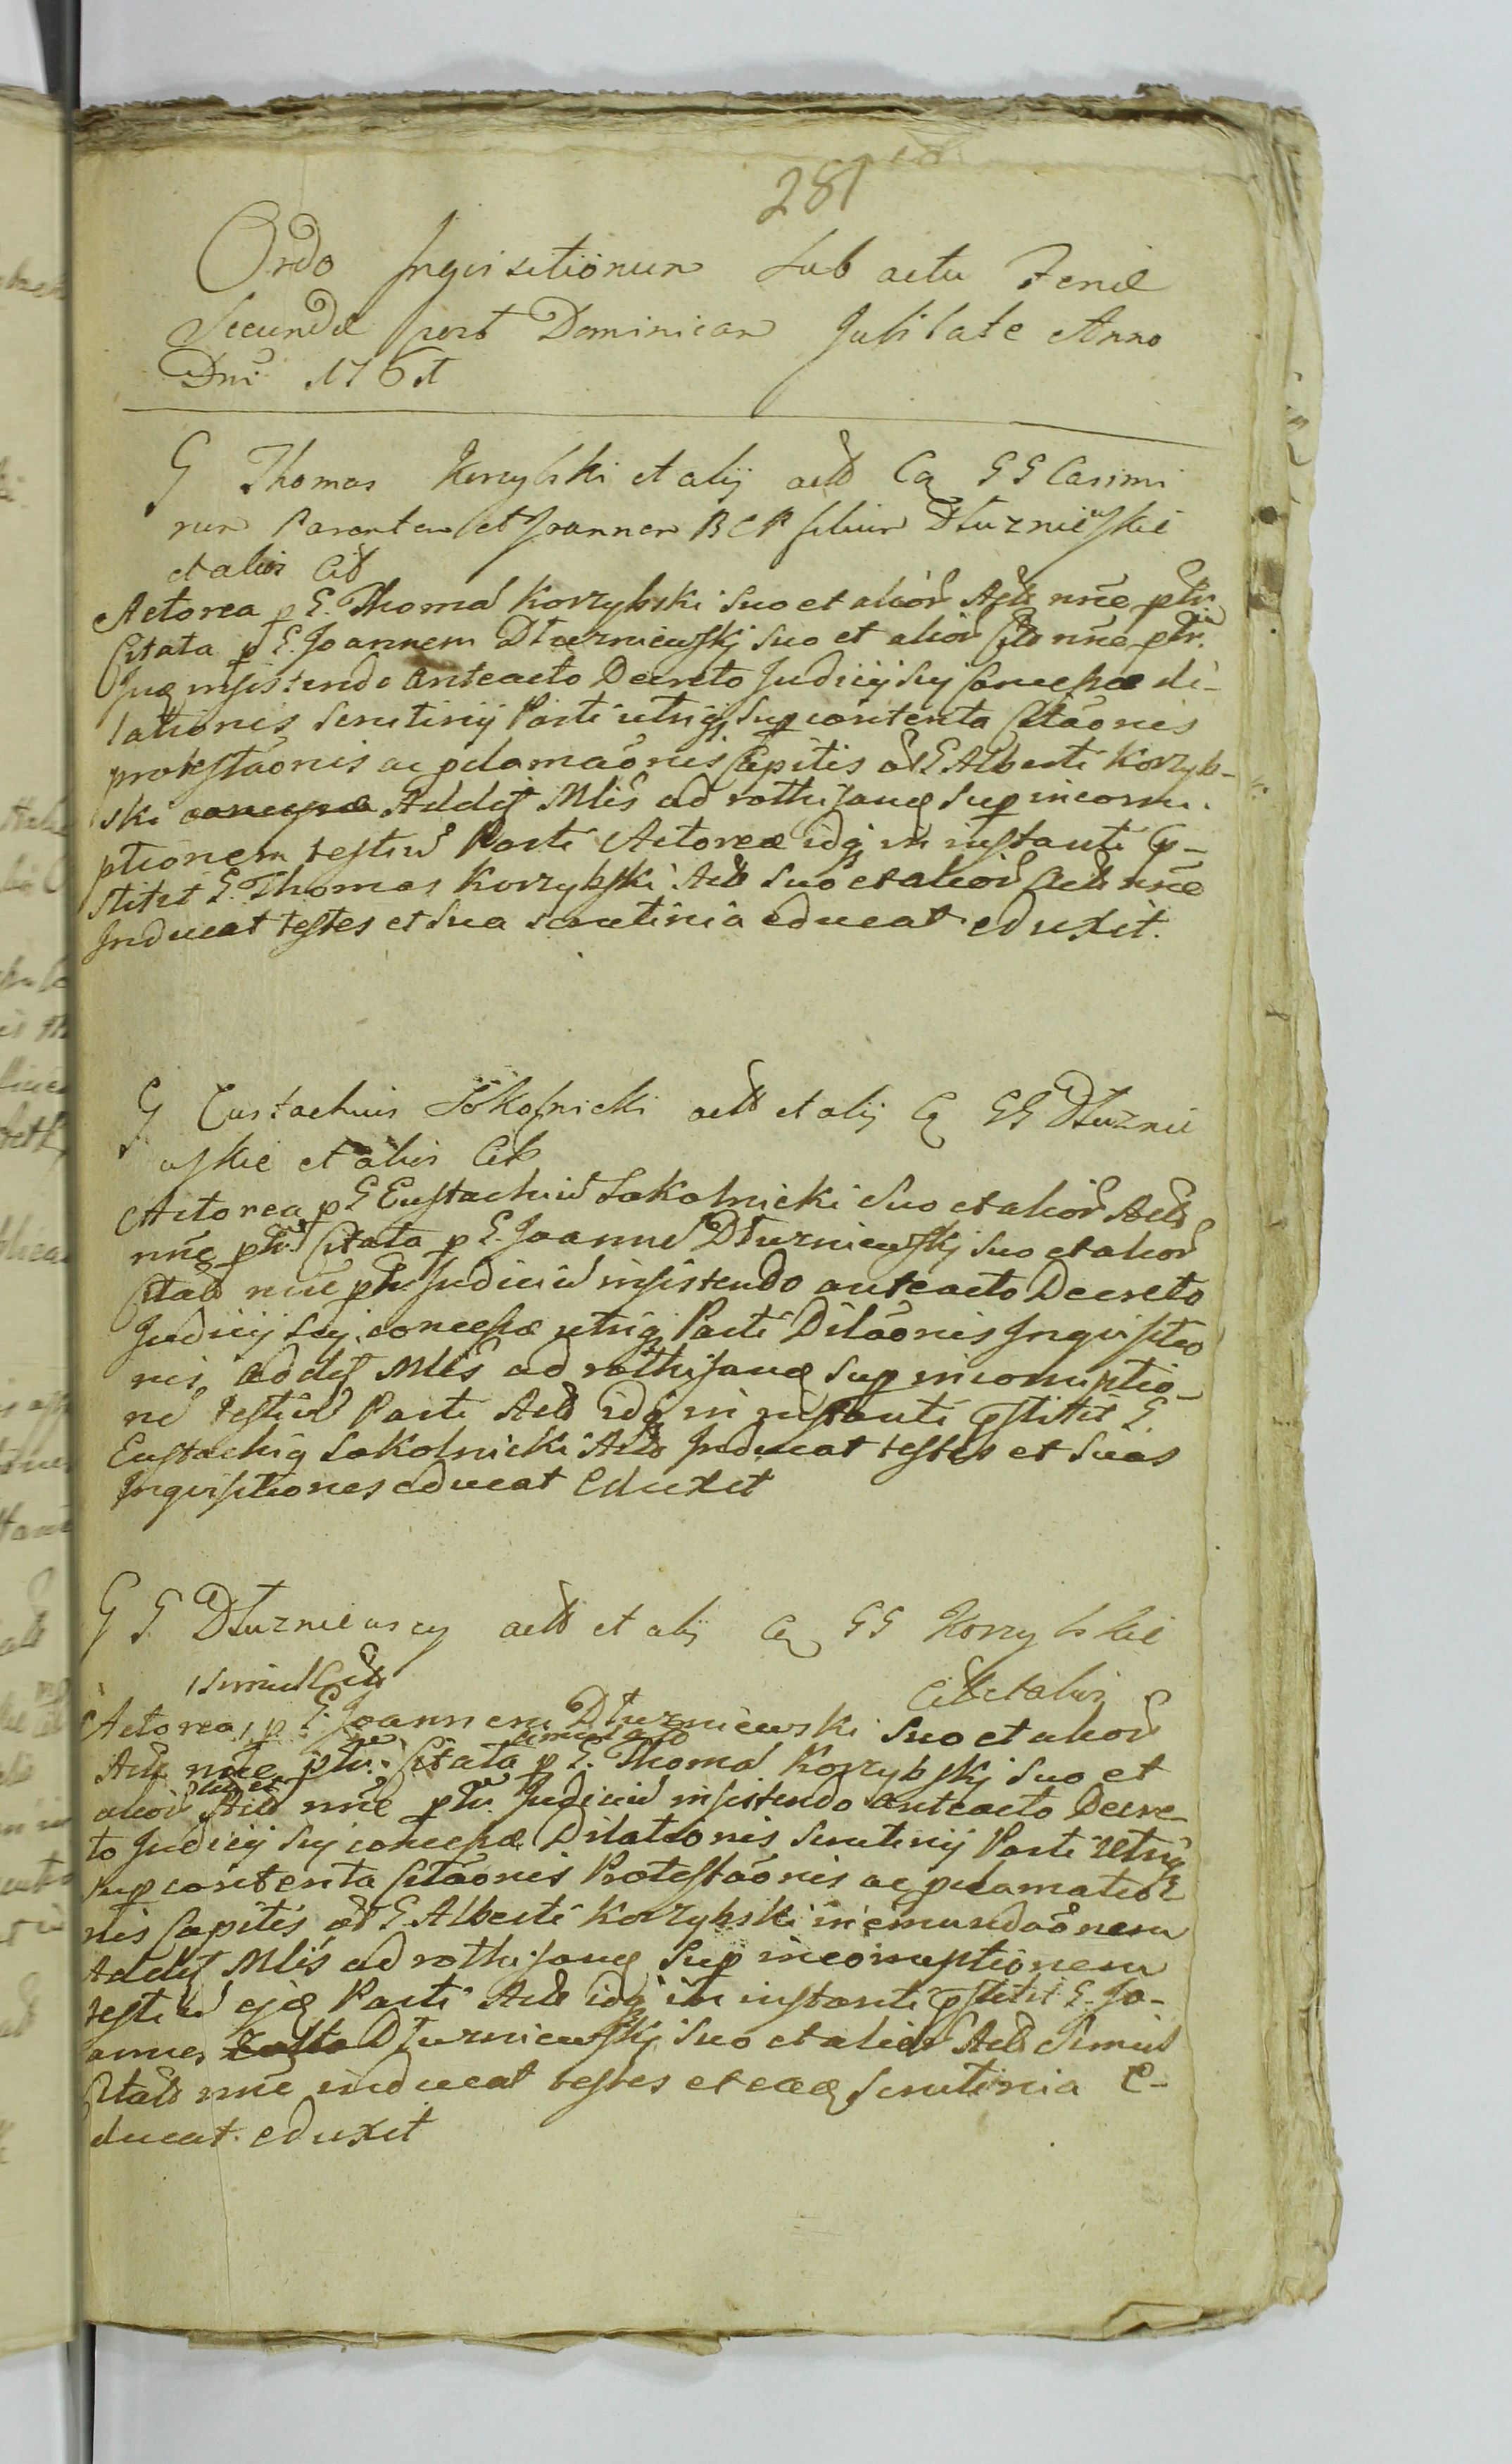 281
Ordo Inquisitionum Sub actu Feriæ
Secundæ post Dominicam Jubilate Anno
Dni 1761
G Thomas Korzybski et alij actt Ca GG Casimi
rum Parentem et Joannem BCR filium Dłuzniewskie
et alios Citt
Actorea p G. Thomã Korzybski suo et alior Actt nñe pttr.
Citata p G. Joannem Dłuzniewskj suo et alior Citt nñe pttr.
insistendo anteacto Decreto Judicij Sui Concessæ di-
lationis Scrutinij Parti utriq Sup contenta Citãonis
protestãonis ac pclamãonis Capitis ol G Alberti Korzyb-
ski concessæ Addus Mlis ad rothisanq Sup incorru-
ptionem testiũ Parti Actoreæ idq in instanti p-
stitit G. Thomas Korzybski Actt suo et alior Actt nñe
Inducat testes et sua scrutinia educat eduxit.
G Eustachius Sokolnicki actt et alij Ca GG Dłuznie
wskie et alios Citt
Actorea p G Eustachiũ Sokolnicki suo et alior Actt
nñe pttr. Citata p G. Joannẽ Dłuzniewskj suo et alior
Citatt nñe pttr Judiciũ insistendo anteacto Decreto
Judicij Sui concessæ utriq Parti Dilãonis Inquisitio
nis, addus Mlis ad rothisanq Sup incorruptio-
nẽ testiũ Parti Actt idq in instanti pstitit G
Eustachiq Sokolnicki Actt Inducat testes et suas
Inquisitiones educat Eduxit
G G Dłuzniewscy actt et alij Ca GG Korzybskie
simul Citt Citt et alios
Actorea, p G. Joannem Dłuzniewski suo et alior
Actt nñe pttr. Citata simul Actt p G. Thomã Korzybskj suo et
alior Citt et Actt nñe pttr. Judiciũ insistendo anteacto Decre-
to Judicij Sui concessæ Dilationis Scrutinij Parti utriq
sup contenta Citãonis Protestãonis ac pclamatio
nis Capitis ol G. Alberti Korzybski in emundãonem
Addus Mlis ad rothisanq Sup incorruptionem
testiũ ejq Parti Actt idq in instanti pstitit G. Jo-
annes Dłuzniewskj suo et alior Actt Simul
Citatt nñe inducat testes et eaq Scrutinia e-
ducat. eduxit